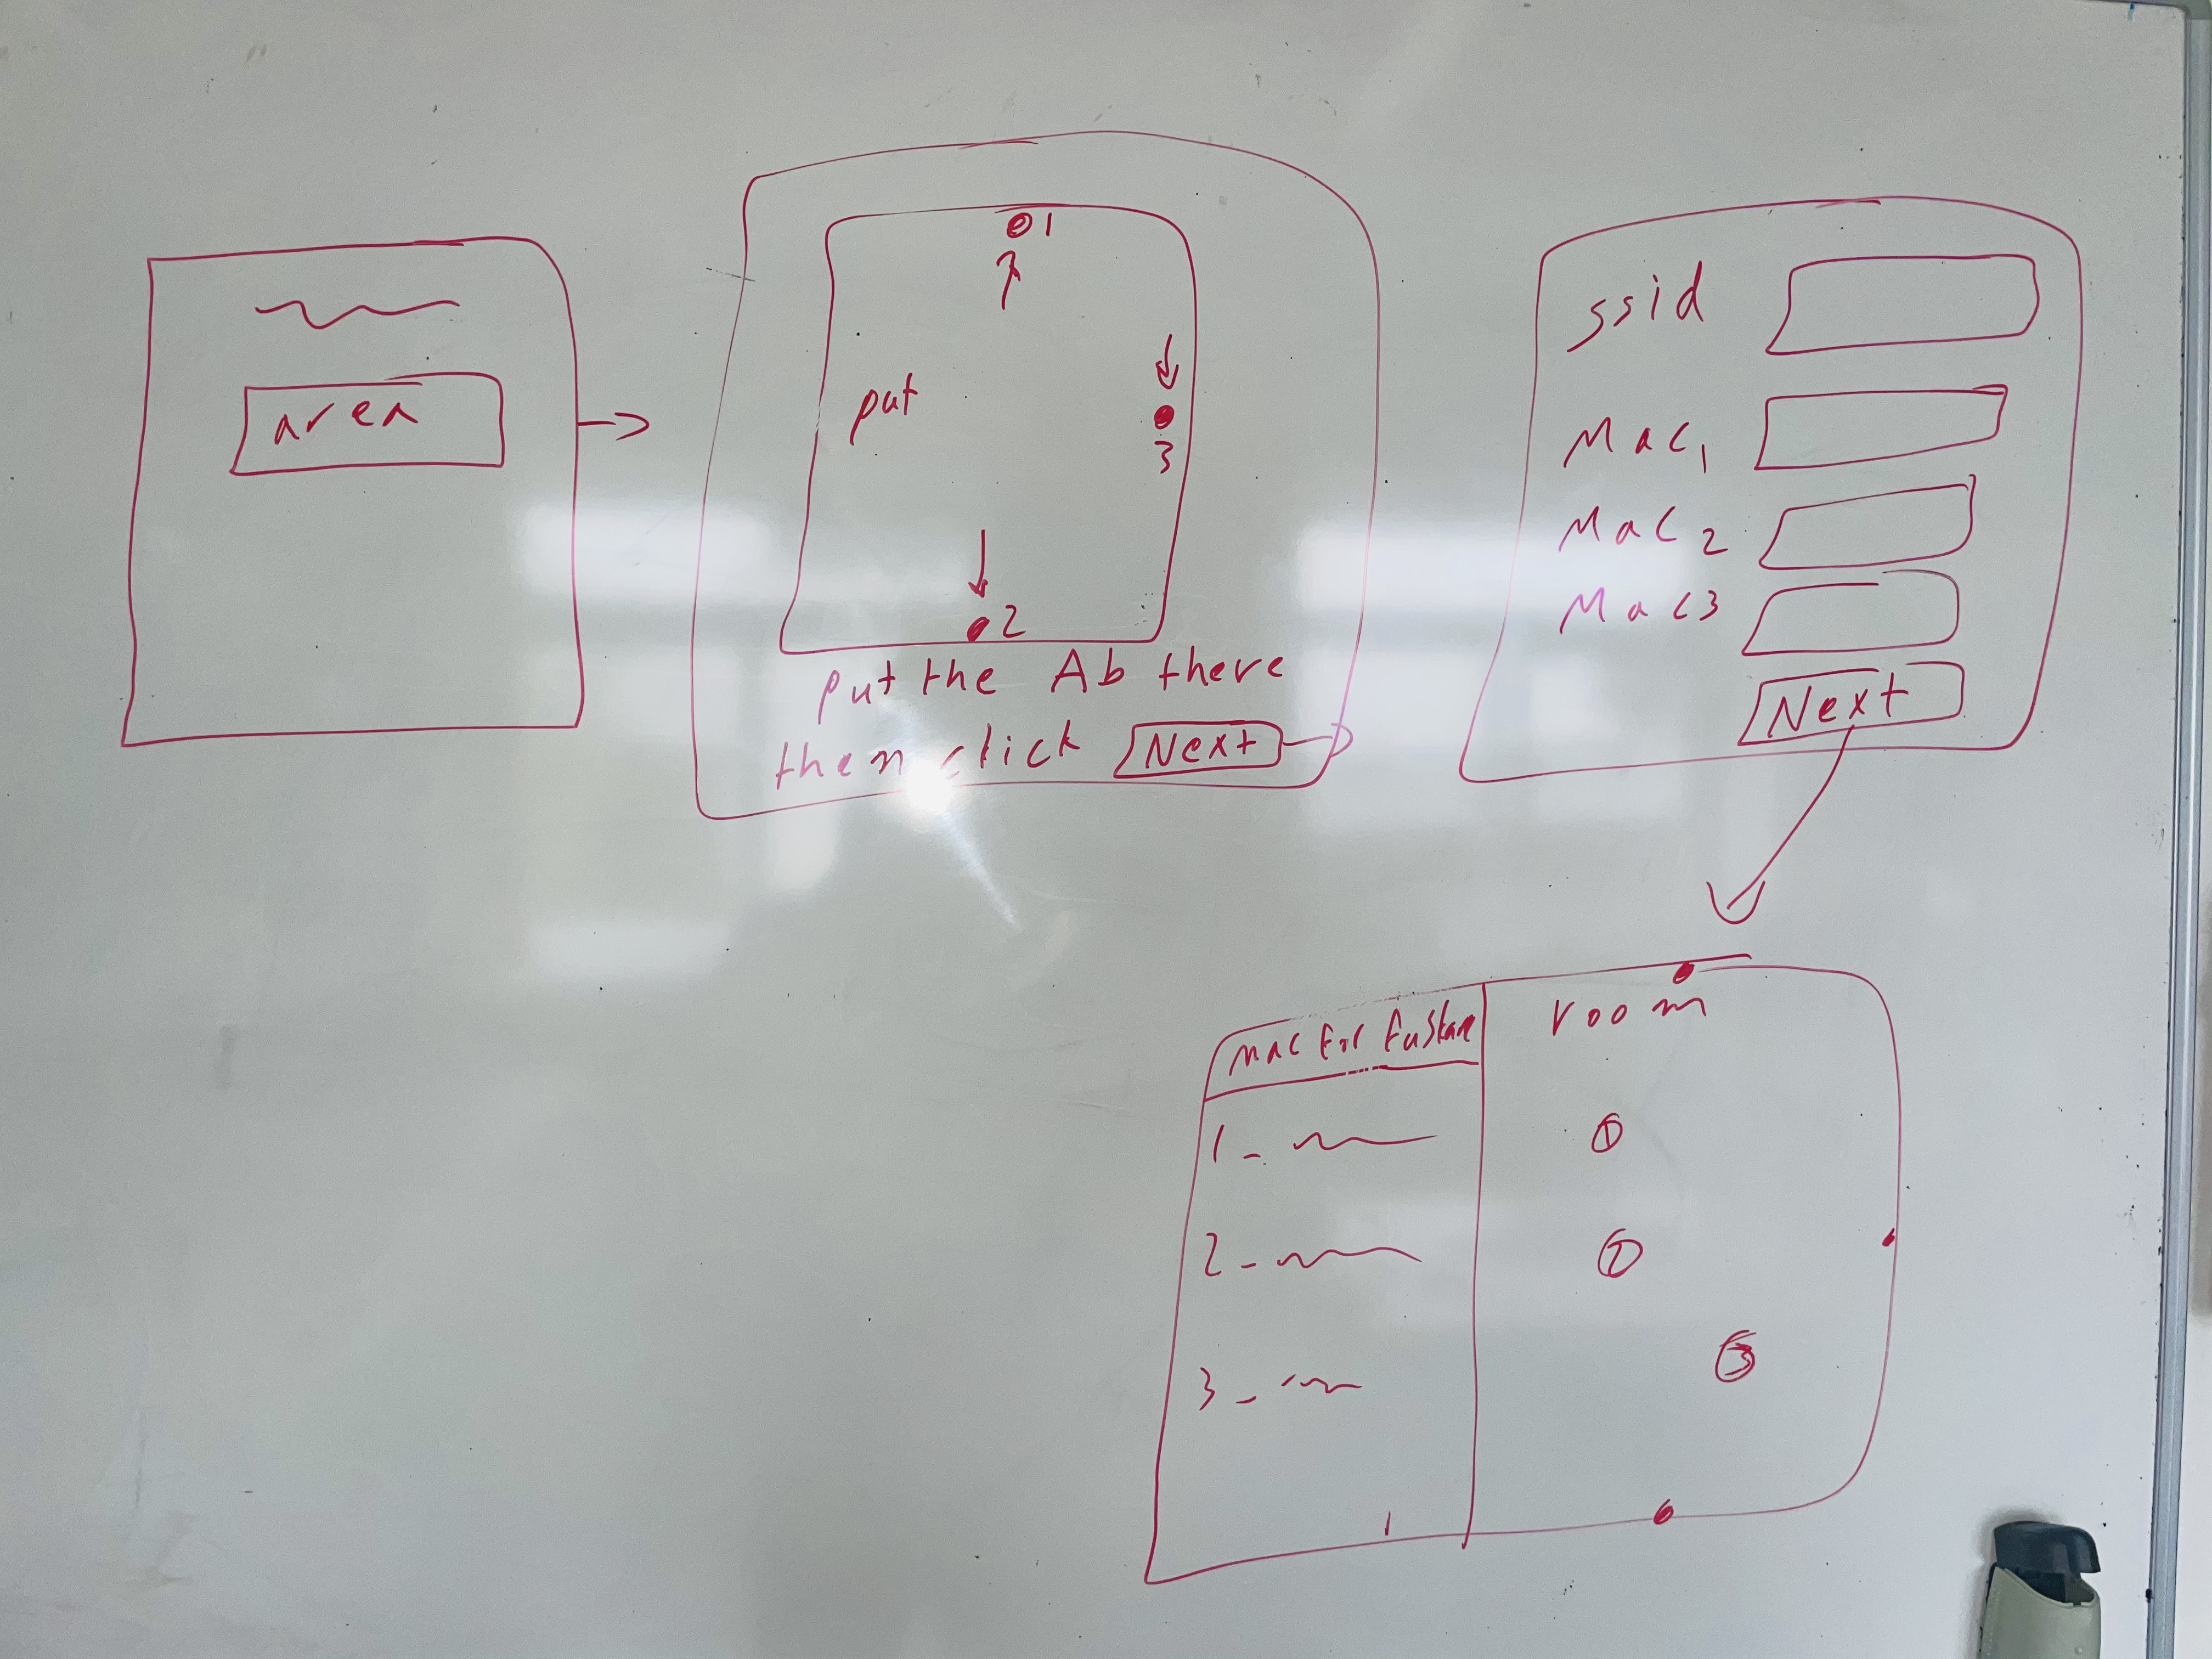 area
1
put
3
2
put the Ab there
then click Next
ssid
Mac1
Mac2
Mac3
Next
Mac For
room
1 -
2 -
3 -
1
2
3